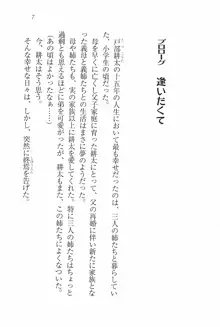 プロローグ 逢いたくて
戸部耕太の十五年の人生において
もっとも幸せだったのは、三人の姉たちと暮らしてい
た、小学生の頃だった。
母を早くに亡くし父子家庭に育った耕太にとって、父の再婚に伴い新たに家族とな
った義母や義姉たちとの生活は、まさに夢のようだった。
母や姉たちも、実の家族以上に耕太を愛してくれた。特に三人の姉たちはちょっと
過剰とも思えるほどに弟を可愛がり、耕太もまた、この姉たちによくなついた。
（あの頃はよかったなぁ……）
今、耕太はそう思う。
そんな幸せな日々は、しかし、突然に終焉を告げた。
7